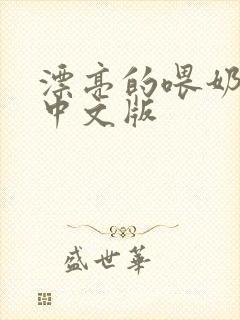 漂亮的喂奶
中文版
盛世華